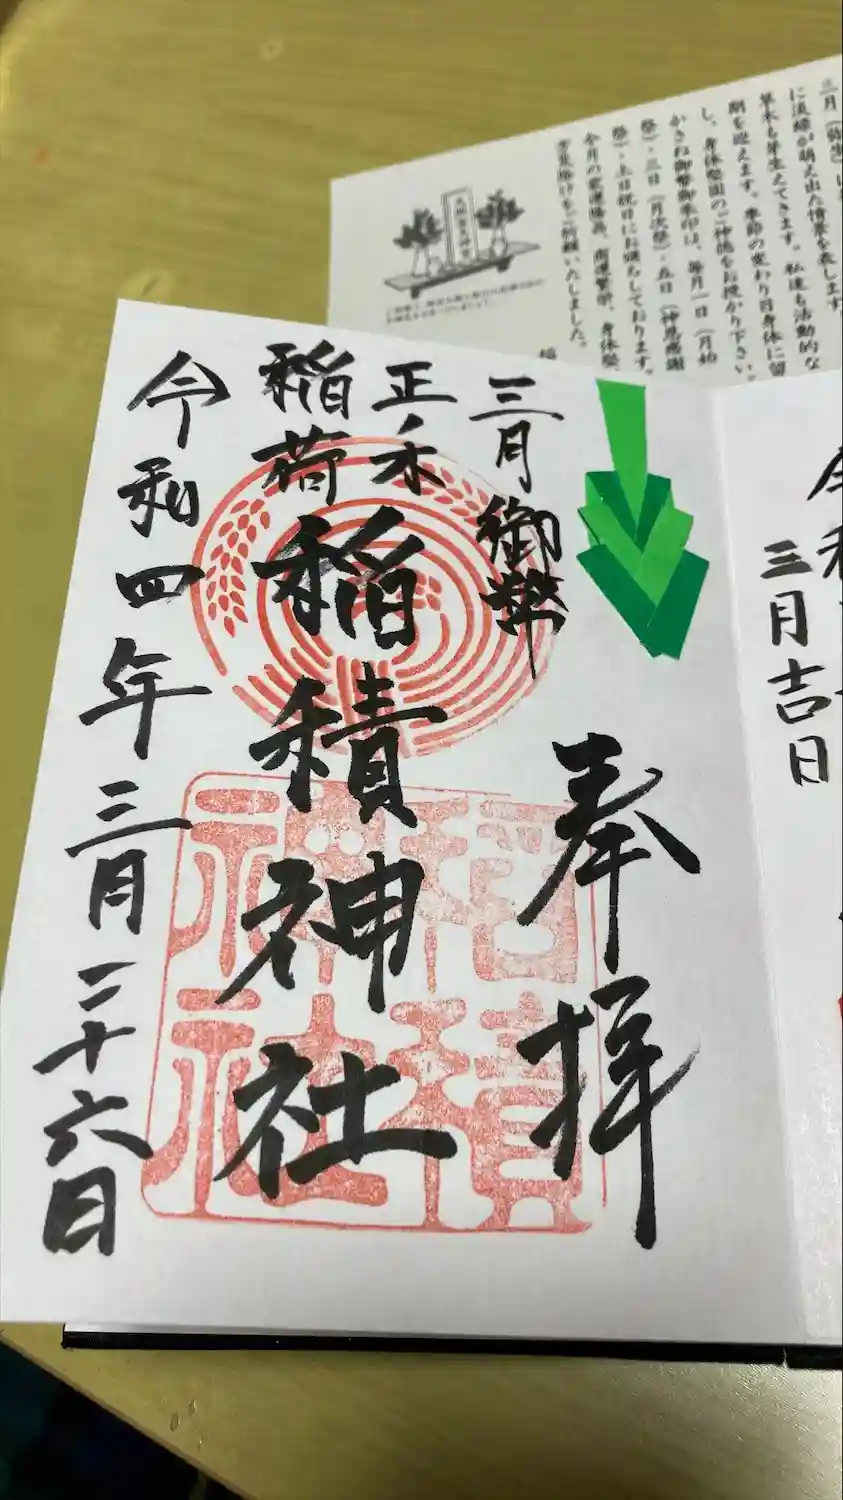 奉拝
三月御幣
正一
稲荷
稲積神社
令和四年三月二十六日
稲積神社
三月吉日
三月(弥生)
に浅緑が萌え出た情景を表します。
草木も芽生えてきます。私達も活動的な
期を迎えます。季節の変わり目身体に留
し、身体堅固のご神徳をお授かり下さい。
かさね御幣御朱印は、毎月一日(月始
祭)・三日(月次祭)・五日(神恩感謝
祭)・土日祝日にお頒ちしております。
今月の変運隆昌、商運繁栄、身体堅